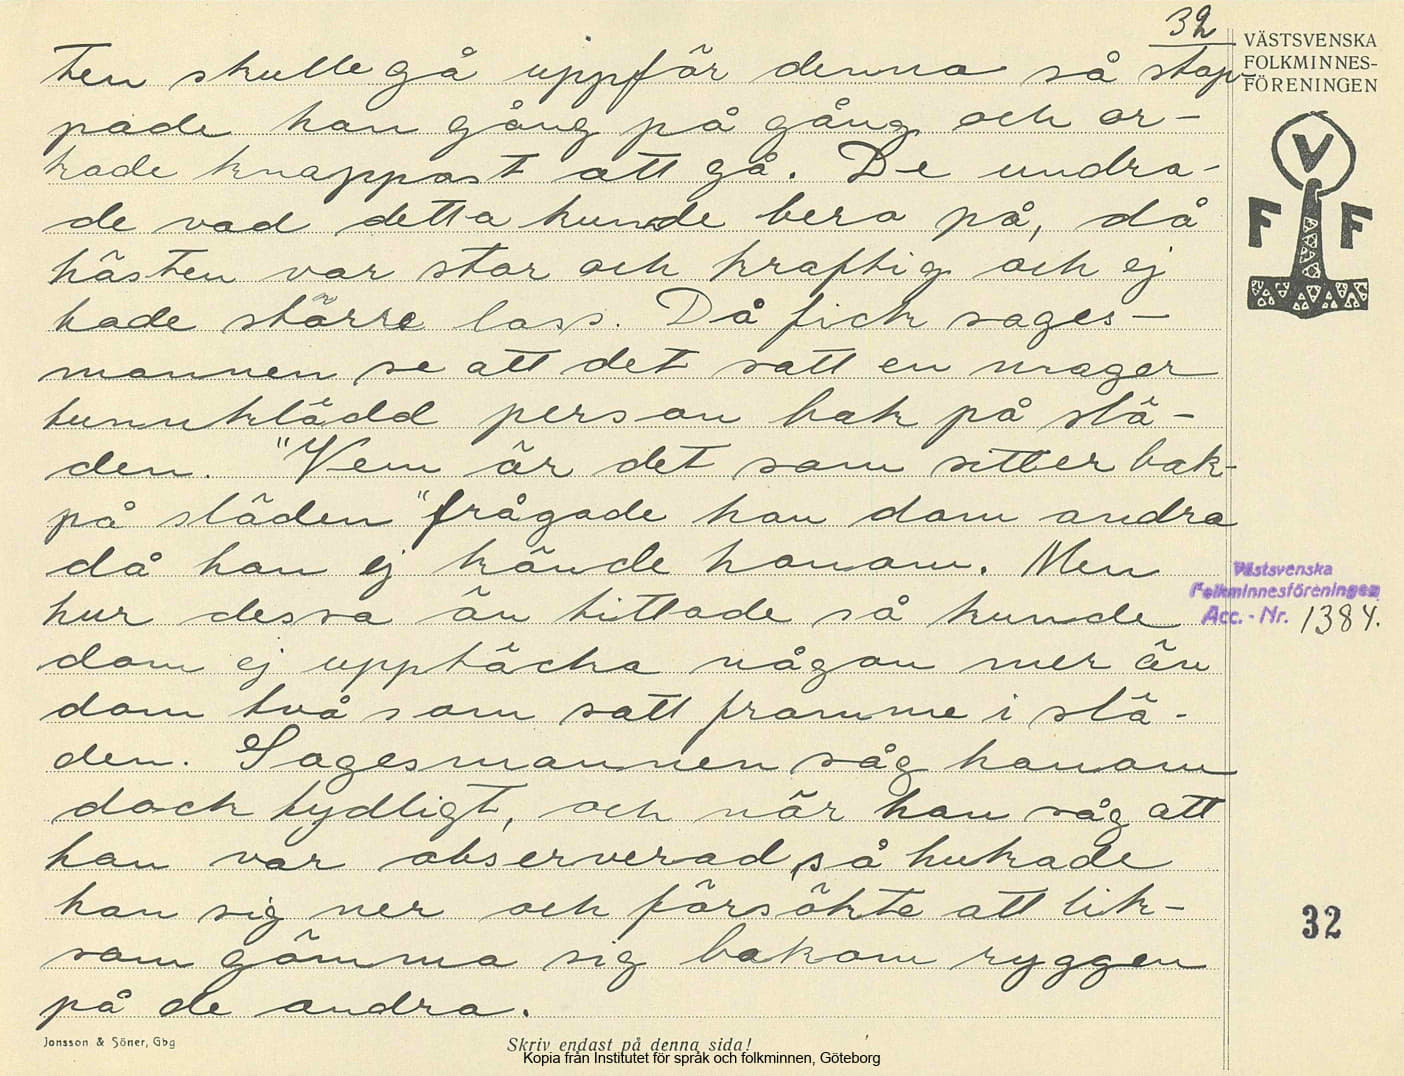 32
ten skulle gå uppför denna så stop-
pade han gång på gång och or-
kade knappast att gå. De undra-
de vad detta kunde bero på, då
hästen var stor och kraftig och ej
hade större lass. Då fick sages-
mannen se att det satt en mager
tunnklädd person bak på slä-
den. "Vem är det som sitter bak-
på släden" frågade han dom andra
då han ej kände honom. Men
hur dessa än tittade så kunde
dom ej upptäcka någon mer än
dom två som satt framme i slä-
den. Sagesmannen såg honom
dock tydligt, och när han såg att
han var observerad, så hukade
han sig ner och försökte att lik-
som gömma sig bakom ryggen
på de andra.
VÄSTSVENSKA
FOLKMINNES-
FÖRENINGEN
V
F F
Västsvenska
Folkminnesföreningen
Acc. - Nr. 1384.
32
Jonsson & Söner, Gbg
Skriv endast på denna sida!
Kopia från Institutet för språk och folkminnen, Göteborg